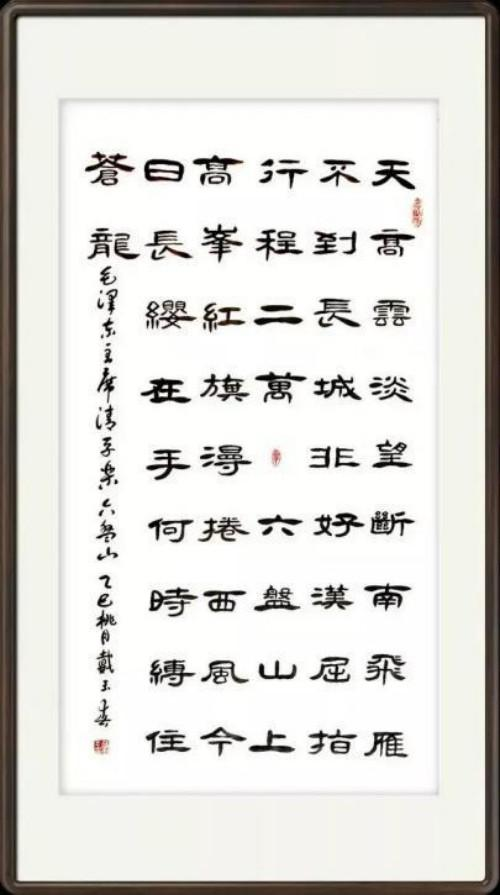 天高雲淡望斷南飛雁
不到長城非好漢屈指
行程二萬六盤山上
高峯紅旗漫捲西風今
日長纓在手何時縛住
蒼龍
毛澤东主席清平樂六盤山 乙巳桃月戴玉